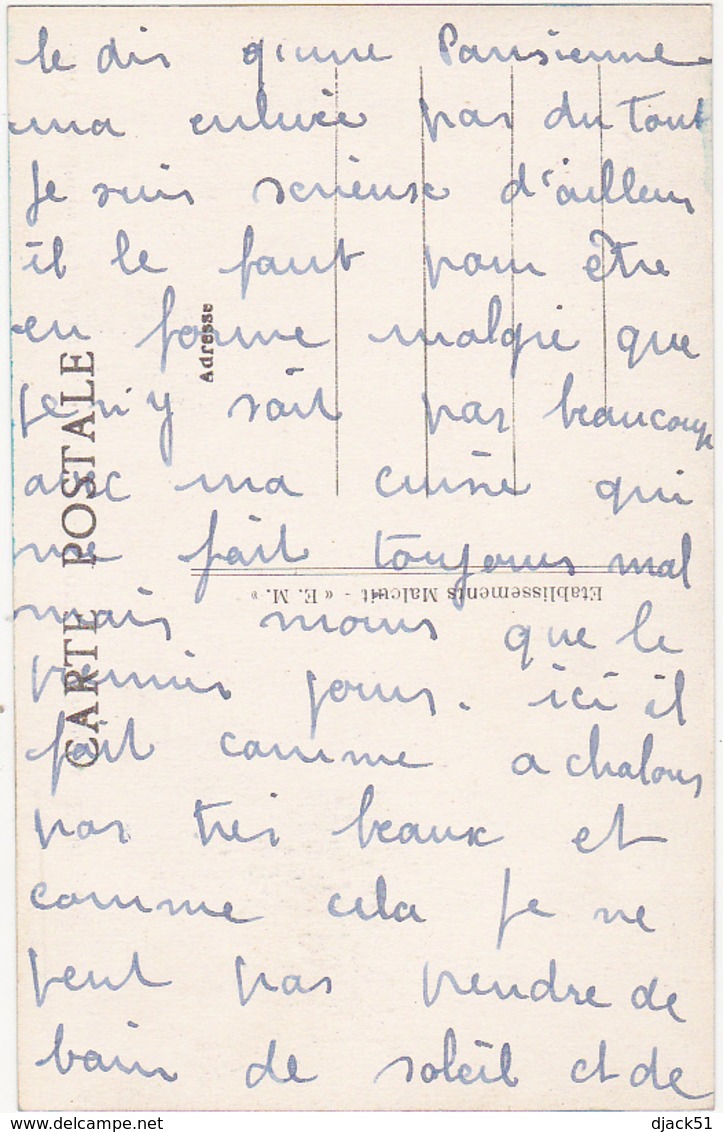 le dis q'une Parisienne
ma enluvée pas du tout
je suis serieuse d'ailleurs
il le faut pour être
en forme malgré que
je n'y soit pas beaucoup
avec ma cuise qui
me fait toujours mal
mais moins que le
premier jours. ici il
fait comme a chalons
pas très beaux et
comme cela je ne
peut pas prendre de
bain de soleil et de
CARTE POSTALE
Adresse
Etablissements Malcuit - « E. M. »
djack51